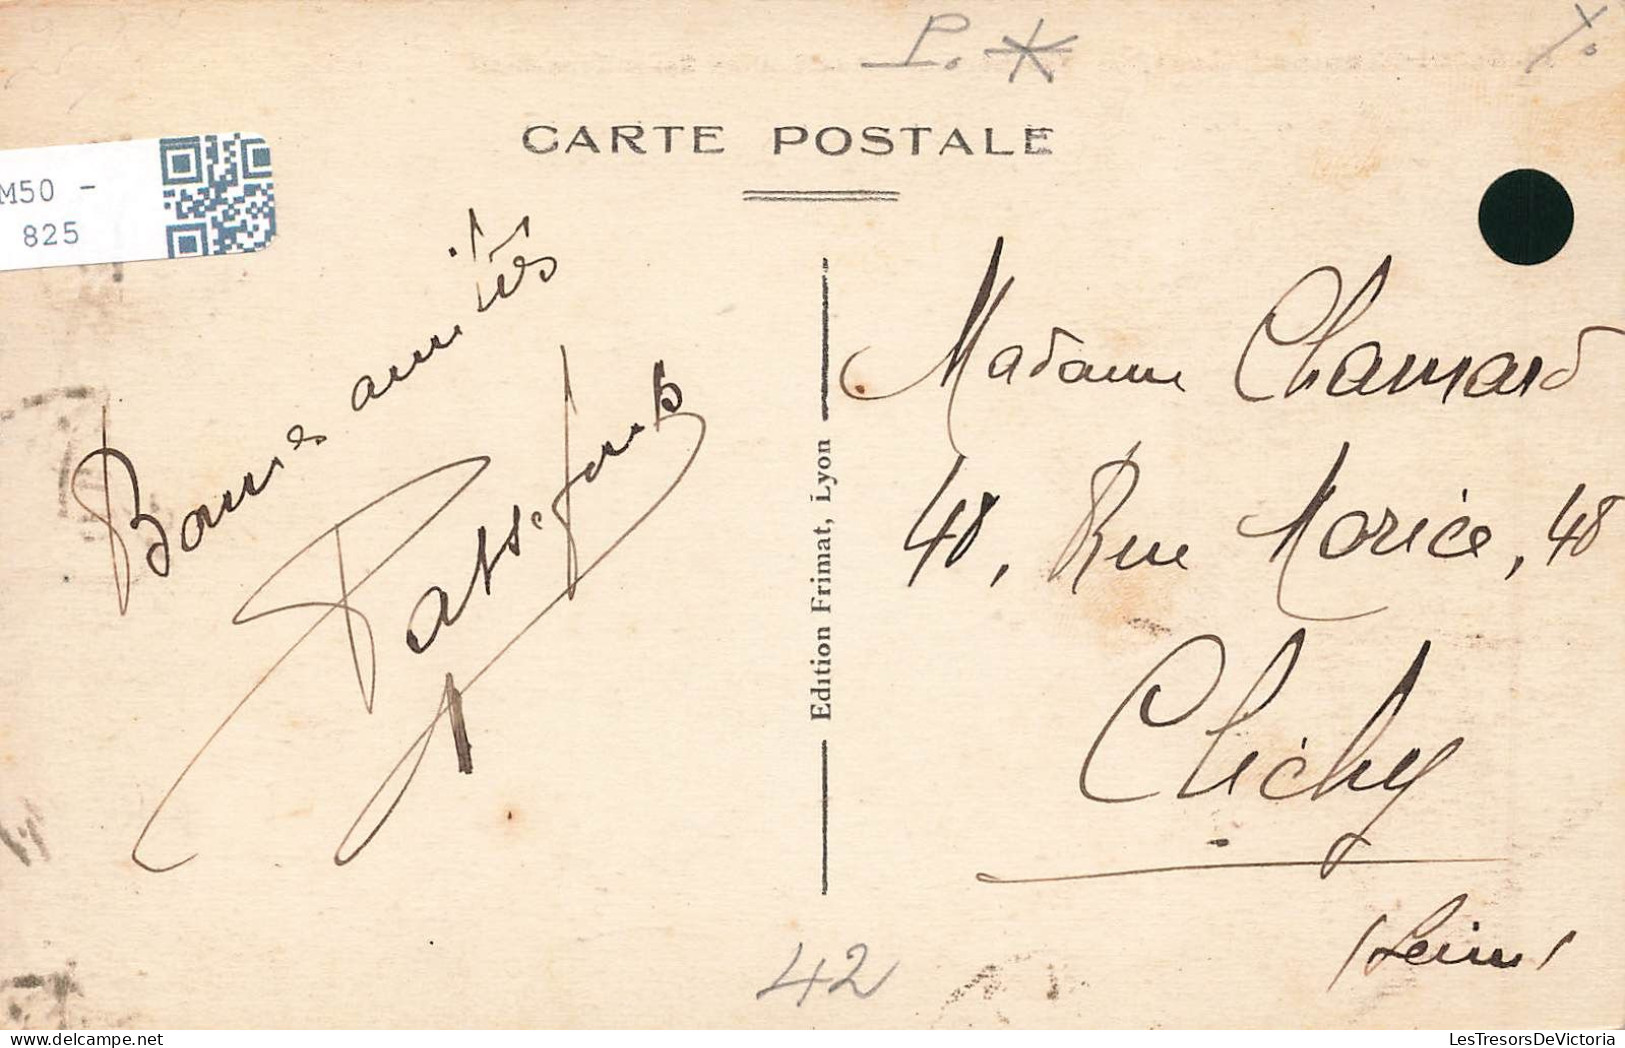 P. *
CARTE POSTALE
M50 -
825
Bonnes amitiés
Edition Frimat, Lyon
Madame Chamard
48, Rue Morice, 48
Clichy
(Seine)
42
LesTresorsDeVictoria